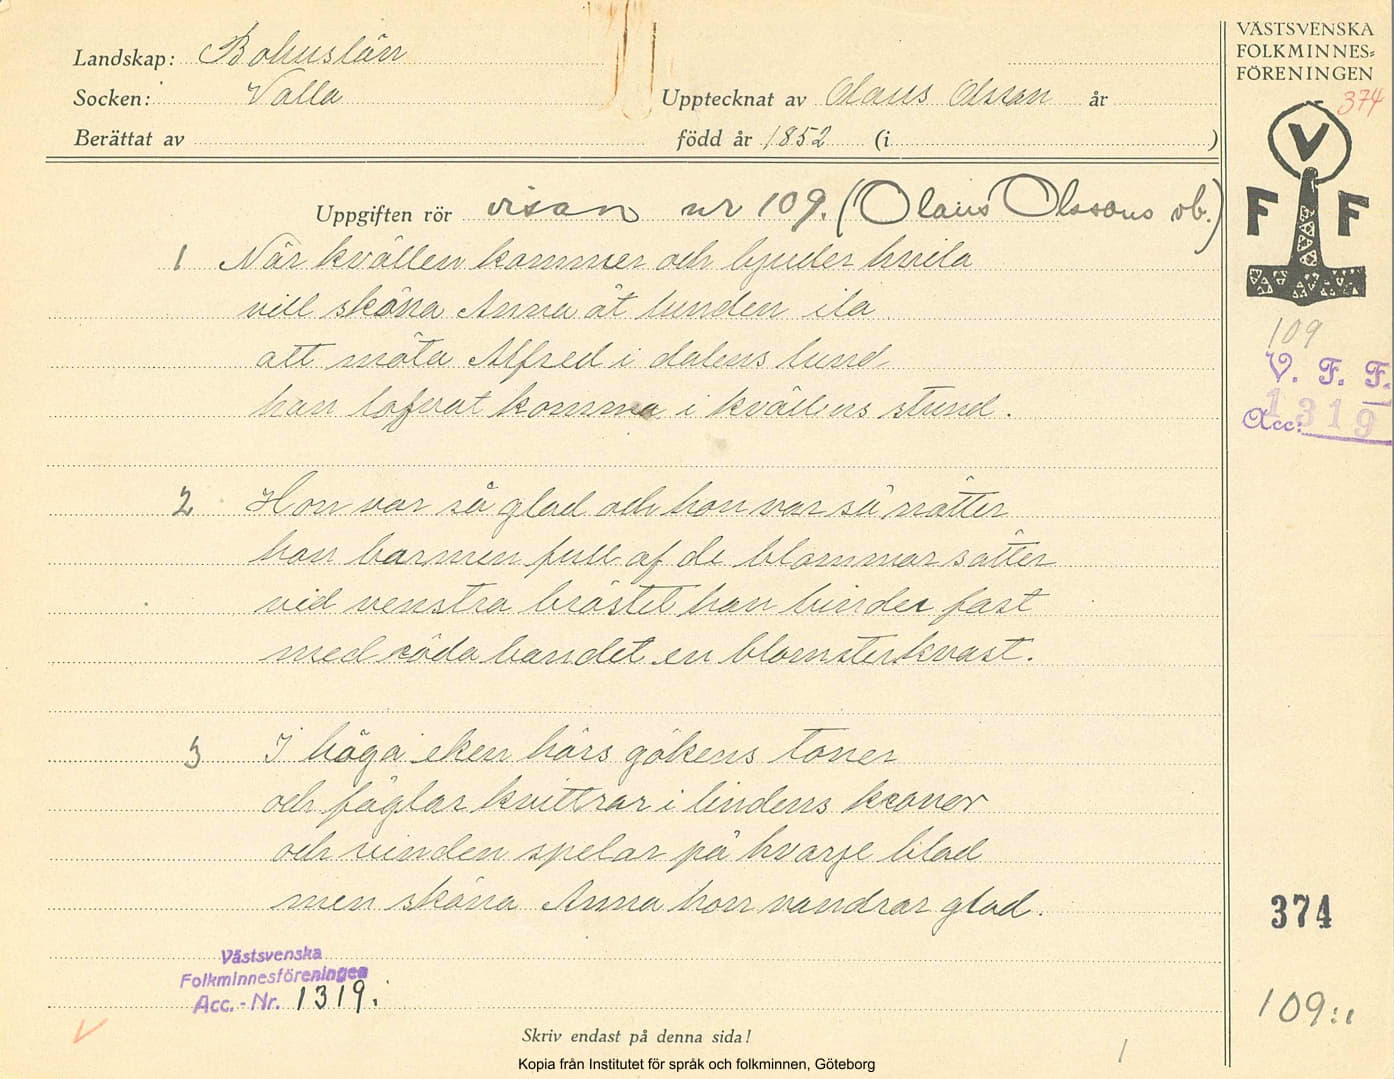 Landskap: Bohuslän
Socken: Valla
Upptecknat av Olaus Olsson år
Berättat av
född år 1852 (i )
VÄSTSVENSKA
FOLKMINNES-
FÖRENINGEN
374
V
F F
Uppgiften rör visan nr 109. (Olaus Olssons vb.)
1 När kvällen kommer och bjuder hvila
vill sköna Anna åt lunden ila
att möta Alfred i dalens lund
han lofvat komma i kvällens stund.
2 Hon var så glad och hon var så nätter
han barmen full af de blommor sätter
vid venstra bröstet han binder fast
med röda bandet en blomsterkvast.
3 I höga eken hörs gökens toner
och fåglar kvittrar i lindens kronor
och vinden spelar på hvarje blad
men sköna Anna hon vandrar glad.
109
V. F. F.
Acc: 1319
374
109:1
Västsvenska
Folkminnesföreningen
Acc.-Nr. 1319.
Skriv endast på denna sida!
1
Kopia från Institutet för språk och folkminnen, Göteborg